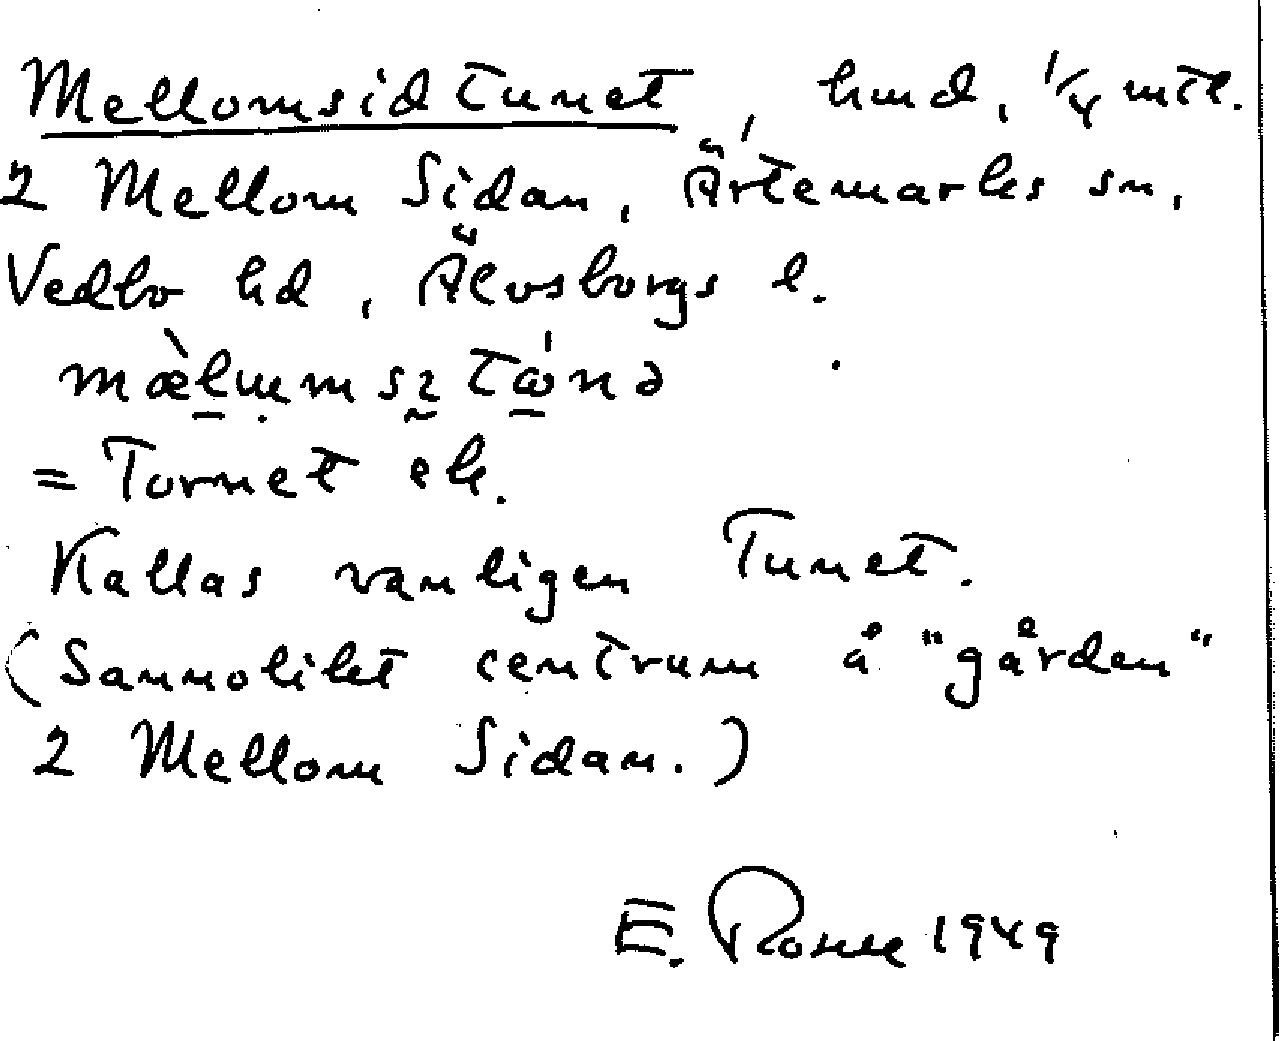 Mellomsidtunet, hmd, 1/4 mtl.
2 Mellom Sidan, Ärtemarks sn,
Vedbo hd, Älvsborgs l.
= Tornet ek.
Kallas vanligen Tunet.
(Sannolikt centrum å "gården"
2 Mellom Sidan.)
E. 1949